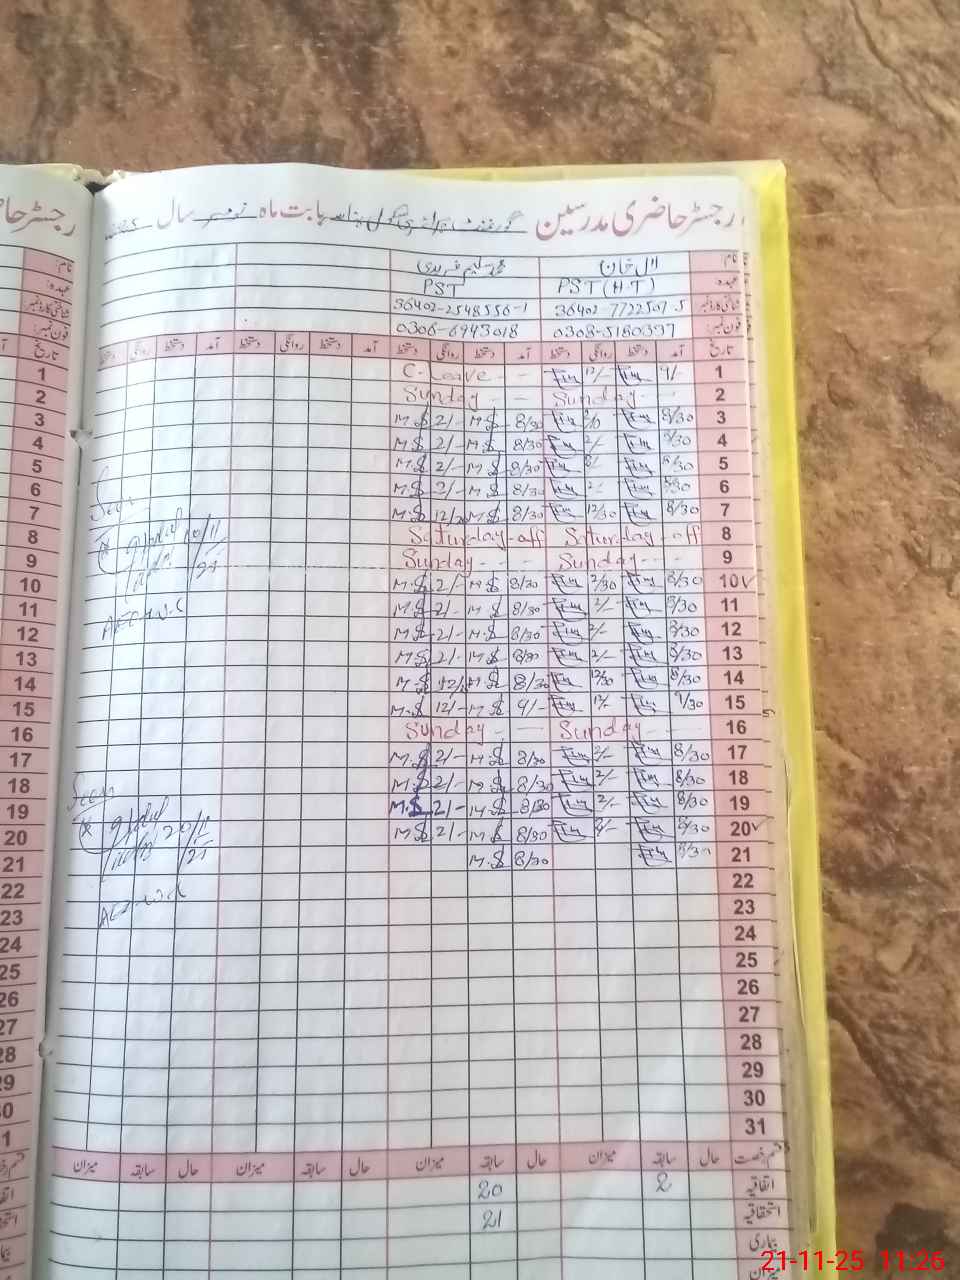 رجسٹر حاضری مدرسین گورنمنٹ بابت ماہ نومبر سال
نام: لال خان محمد سلیم فریدی
عہدہ: PST (H.T) PST
شناختی کارڈ نمبر: 36402-7722507-5 36402-2548556-1
فون نمبر: 0308-5180337 0306-6943018
تاریخ آمد دستخط روانگی دستخط آمد دستخط روانگی دستخط آمد دستخط روانگی دستخط آمد دستخط روانگی دستخط
1 9/- 12/- C-Leave - -
2 Sunday - - Sunday - -
3 8/30 8/30 M.S 2/- M.S
4 8/30 2/- 8/30 M.S 2/- M.S
5 8/30 8/30 M.S 2/- M.S
6 8/30 2/- 8/30 M.S 2/- M.S
7 8/30 12/30 8/30 M.S 12/30 M.S
8 Saturday-off Saturday-off
9 Sunday - - - Sunday - - -
10 8/30 2/30 8/30 M.S 2/- M.S
11 8/30 2/- 8/30 M.S 2/- M.S
12 8/30 2/- 8/30 M.S 2/- M.S
13 8/30 2/- 8/30 M.S 2/- M.S
14 8/30 12/30 8/30 M.S M.S
15 9/30 12/- 9/- M.S 12/- M.S
16 Sunday - - Sunday - -
17 8/30 2/- 8/30 M.S 2/- M.S
18 8/30 2/- 8/30 M.S 2/- M.S
19 8/30 2/- 8/30 M.S 2/- M.S
20 8/30 8/30 M.S 2/- M.S
21 8/30 8/30 M.S
22
23
24
25
26
27
28
29
30
31
Seen
10/11
Seen
20/11
قسم رخصت حال سابقہ میزان حال سابقہ میزان حال سابقہ میزان حال سابقہ میزان
اتفاقیہ 2 20
استحقاقیہ 21
بیماری
میزان
21-11-25 11:26